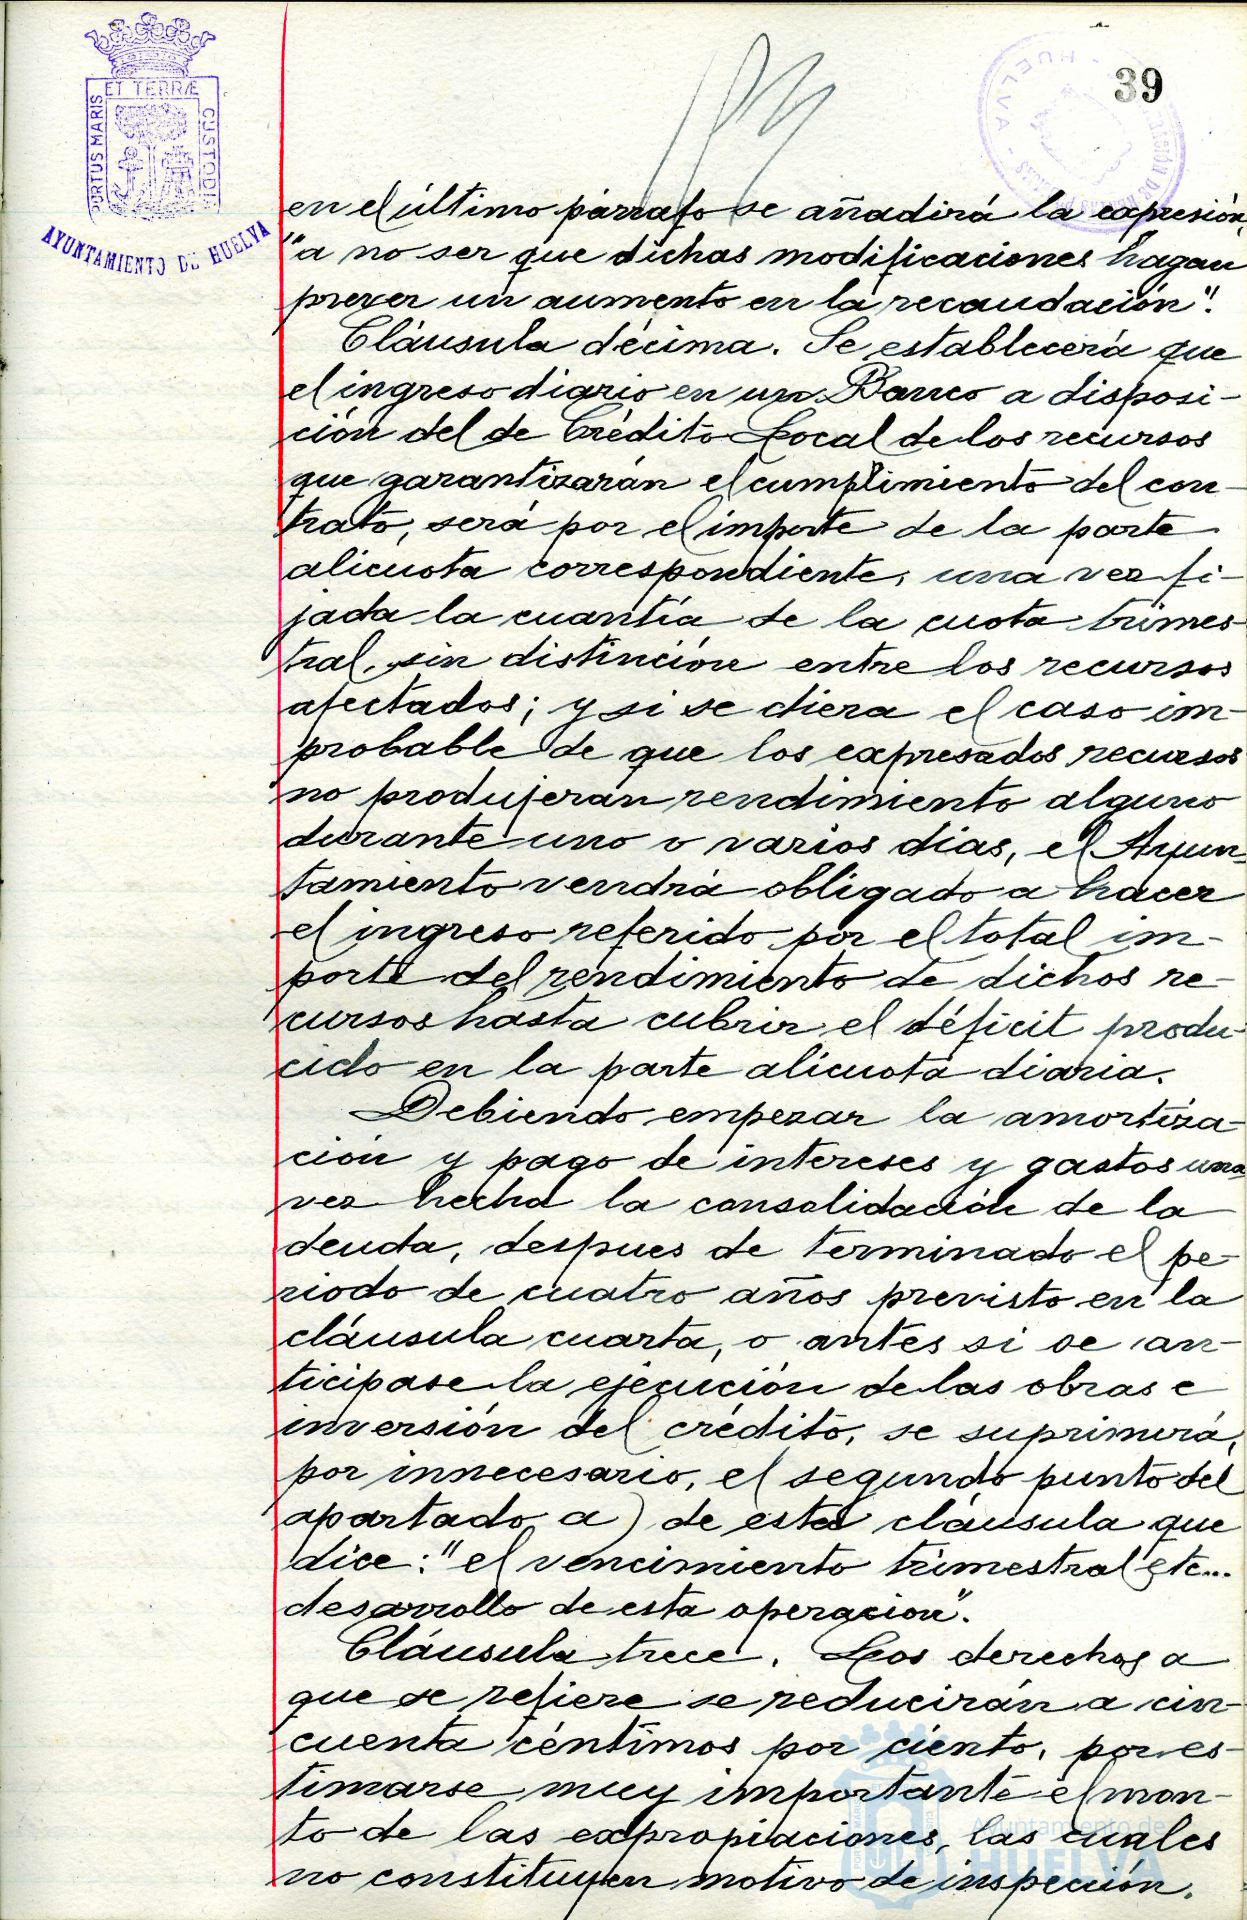 39
ET TERRÆ
PORTUS MARIS
CUSTODI
AYUNTAMIENTO DE HUELVA
HUELVA
en el último párrafo se añadirá la expresión,
"a no ser que dichas modificaciones hagan
prever un aumento en la recaudación".
Cláusula décima. Se establecerá que
el ingreso diario en un Banco a disposi-
ción del de Crédito Local de los recursos
que garantizarán el cumplimiento del con-
trato, será por el importe de la parte
alicuota correspondiente, una vez fi-
jada la cuantía de la cuota trimes-
tral, sin distinción entre los recursos
afectados; y si se diera el caso im-
probable de que los expresados recursos
no produjeran rendimiento alguno
durante uno o varios dias, el Ayun-
tamiento vendrá obligado a hacer
el ingreso referido por el total im-
porte del rendimiento de dichos re-
cursos hasta cubrir el déficit produ-
cido en la parte alicuota diaria.
Debiendo empezar la amortiza-
ción y pago de intereses y gastos una
vez hecha la consolidación de la
deuda, despues de terminado el pe-
riodo de cuatro años previsto en la
cláusula cuarta, o antes si se an-
ticipase la ejecución de las obras e
inversión del crédito, se suprimirá,
por innecesario, el segundo punto del
apartado a) de esta cláusula que
dice: "el vencimiento trimestral etc...
desarrollo de esta operación".
Cláusula trece. Los derechos a
que se refiere se reducirán a cin-
cuenta céntimos por ciento, por es-
timarse muy importante el mon-
to de las expropiaciones, las cuales
no constituyen motivo de inspección.
Ayuntamiento de
HUELVA